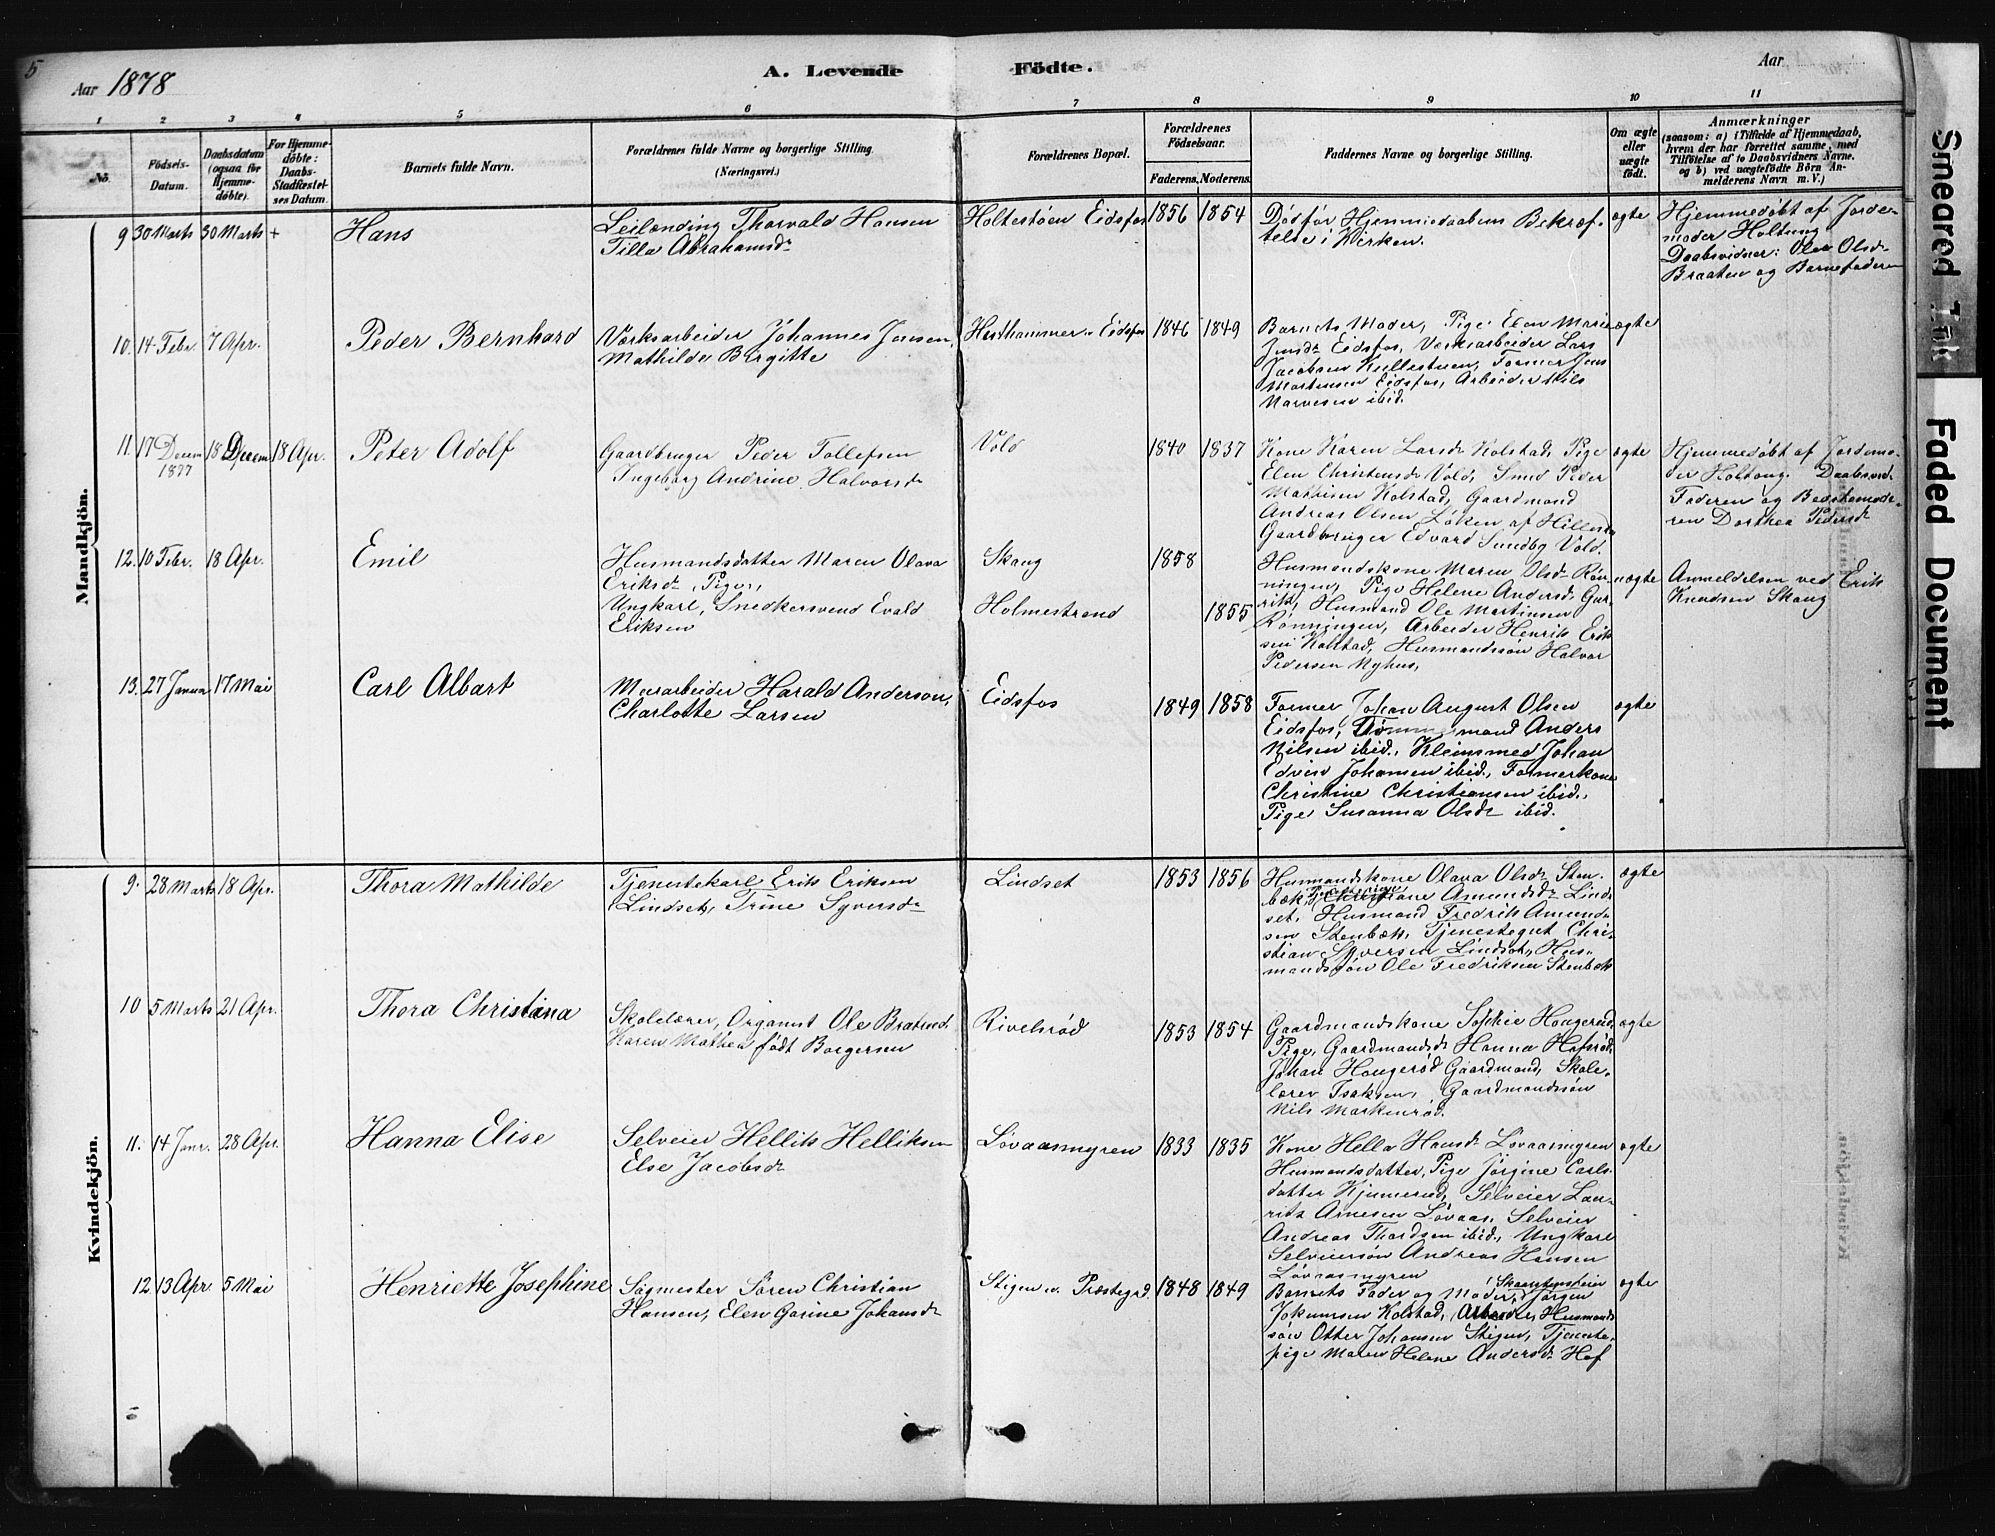 5
Aar 1878
A. Levende Födte.
Aar
1 2 3 4 5 6 7 8 9 10 11
No.
Födsels-
Datum.
Daabsdatum
(ogsaa for
Hjemme-
döbte).
For Hjemme-
döbte:
Daabs-
Stadfæstel-
ses Datum.
Barnets fulde Navn.
Forældrenes fulde Navne og borgerlige Stilling
(Næringsvei.)
Forældrenes Bopæl.
Forældrenes
Födselsaar.
Faderens. Moderens.
Faddernes Navne og borgerlige Stilling.
Om ægte
eller
uægte
födt.
Anmærkninger
(saasom: a) i Tilfælde af Hjemmedaab,
hvem der har forrettet samme, med
Tilföielse af to Daabsvidners Navne.
og b) ved uægtefödte Börn An-
melderens Navn m. V.)
Mandkjön.
9 30 Marts 30 Marts + Hans
Leilænding Thorvald Hansen
Tilla Abrahamsdr
Holtestøen Eidsfos 1856 1854
Død før Hjemmedaabens Bekræf-
telse i Kirken.
ægte
Hjemmedøbt af Jorde-
moder Holtung
Daabsvidner: Olea Olsdr
Braaten og Barnefaderen
10. 14 Febr. 7 Apr. Peder Bernhard
Værksarbeider Johannes Jensen,
Mathilde Birgitte
Hesthammer. Eidsfos 1846 1849
Barnets Moder, Pige Elen Marie
Jensdr Eidsfos, Værksarbeider Lars
Jacobsen Kullestuen, Former Jens
Martinsen Eidsfos, Arbeider Nils
Narvesen ibid.
ægte
11. 17 Decem 1877 18 Decem 18 Apr. Peter Adolf
Gaardbruger Peder Tollefsen
Ingeborg Andrine Halvorsdr
Vold 1840 1837
Kone Karen Larsdr Kolstad, Pige
Elen Christensdr Vold, Smed Peder
Mathisen Kolstad, Gaardmand
Andreas Olsen Løken af Hillestad
Gaardbruger Edvard Sundby Vold.
ægte
Hjemmedøbt af Jordemo-
der Holtung. Daabsvid.
Faderen og Bedstemode-
ren Dorthea Pedersdr
12. 10 Febr. 18 Apr. Emil
Husmandsdatter Maren Olava
Eriksdr, Pige,
Ungkarl, Snedkersvend Evald
Eriksen
Skaug
Holmestrand
1858
1855
Husmandskone Maren Olsdr Røn-
ningen, Pige Helene Andersdr Gur-
rik, Husmand Ole Martinsen
Rønningen, Arbeider Henrik Erik
sen Kolstad, Husmandssøn Halvor
Pedersen Nyhus,
uægte
Anmeldelsen ved Erik
Knudsen Skaug
13. 27 Januar 17 Mai Carl Albart
Murarbeider Harald Anderson,
Charlotte Larsen
Eidsfos 1849 1858
Former Johan August Olsen
Eidsfos, Tømmermand Anders
Nilsen ibid., Kleinsmed Johan
Edvin Johansen ibid., Formerkone
Christine Christiansen ibid.,
Pige Susanna Olsdr ibid.
ægte
Kvindekjön.
9. 28 Marts 18 Apr. Thora Mathilde
Tjenestekarl Erik Eriksen
Lindset, Trine Syversdr
Lindset 1853 1856
Husmandskone Olava Olsdr Sten-
bæk, Tjenestepige Christiane Amundsdr Lind-
set, Husmand Fredrik Amund-
sen Stenbæk, Tjenestegut Chri-
stian Syversen Lindset, Hus-
mandssøn Ole Fredriksen Stenbæk
ægte
10 5 Marts 21 Apr. Thora Christiana
Skolelærer, Organist Ole Bratund.
Karen Mathea født Borgersen
Rivelsrød 1853 1854
Gaardmandskone Sophie Hougerød,
Pige, Gaardmandsdr Hanna Hafsrød,
Johan Hougerød Gaardmand, Skole-
lærer Isaksen, Gaardmandssøn
Nils Markerød.
ægte
11. 14 Janr. 28 Apr. Hanna Elise
Selveier Hellik Helliksen
Else Jacobsdr
Løvaasmyren 1833 1835
Kone Hella Hansdr Løvaasmyren
Husmandsdatter, Pige Jørgine Carls-
datter Kjunerød, Selveier Lau-
ritz Arnesen Løvaas, Selveier
Andreas Thordsen ibid, Ungkarl
Selveiersøn Andreas Hansen
Løvaasmyren
ægte
12. 13 Apr 5 Mai Henriette Josephine
Sagmester Søren Christian
Hansen, Elen Gorine Johansdr
Stigen v. Præstegrd. 1848 1849
Barnets Fader og Moder, Skarstensfeier Jørgen
Jokumsen Kolstad, Arbeider, Husmand
søn Otter Johansen Stigen, Tjeneste-
pige Maren Helene Andersdr Hof
ægte
Smeared Ink
Faded Document